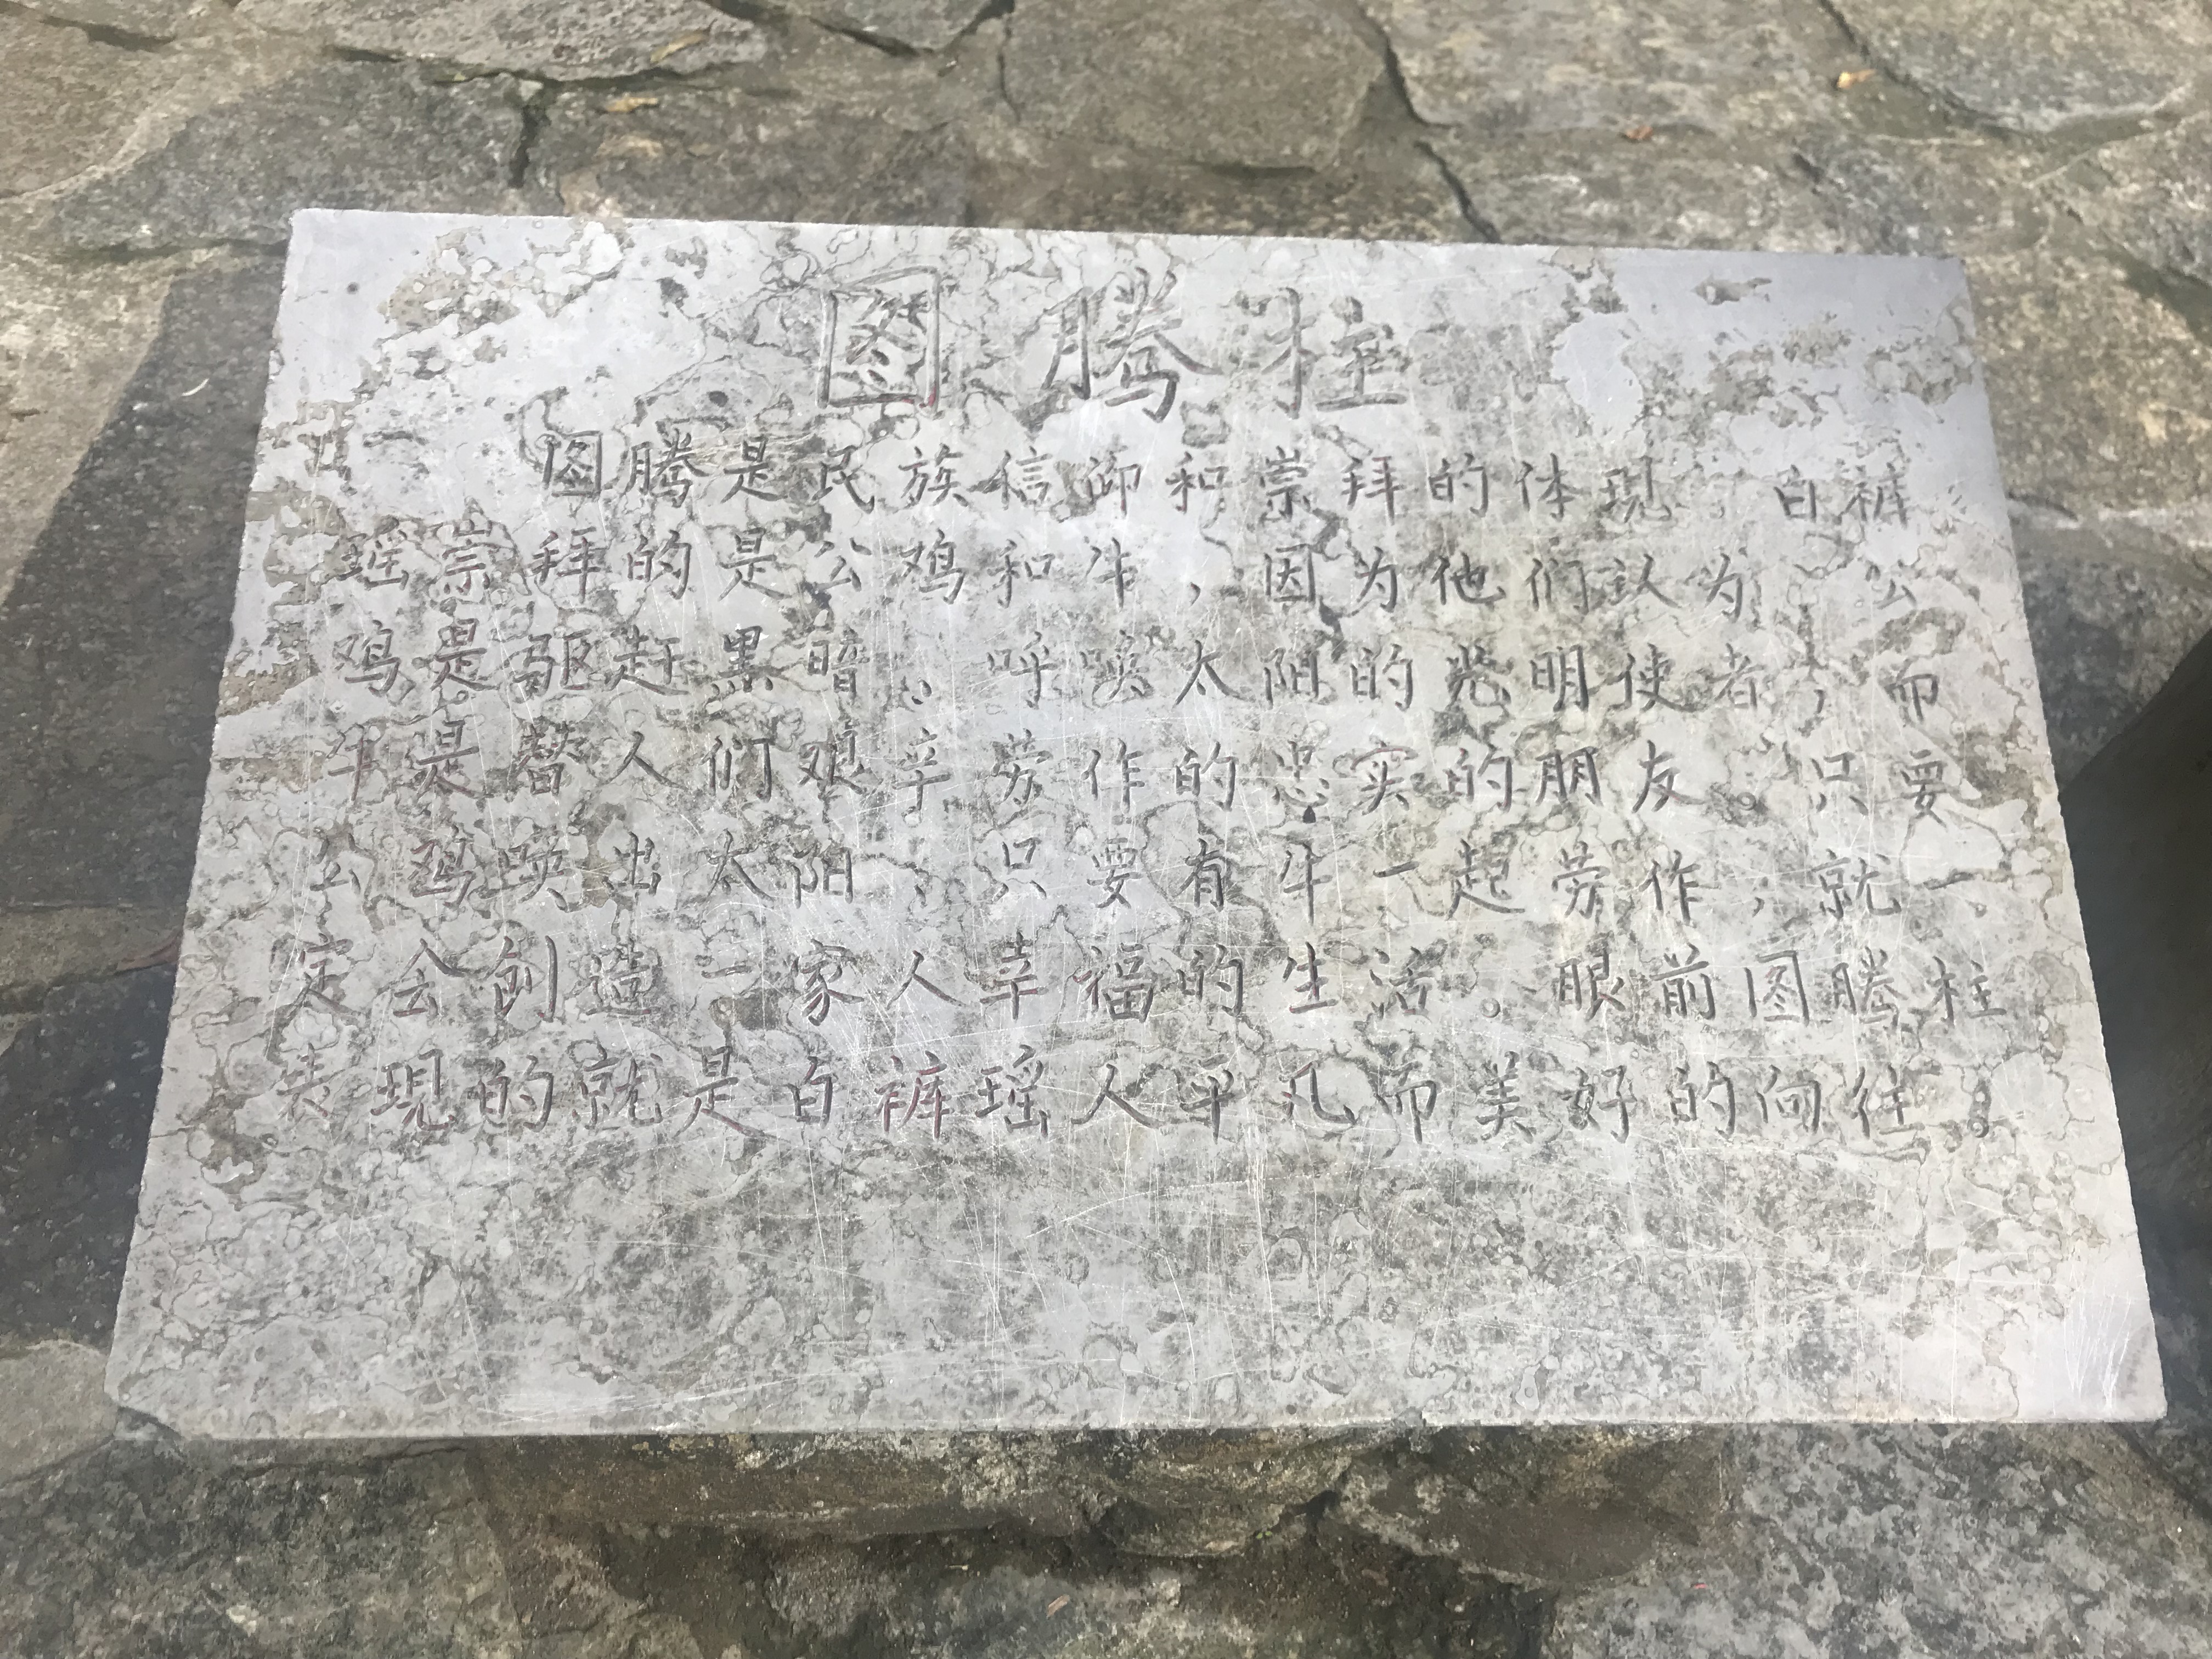 图腾柱
图腾是民族信仰和崇拜的体现，白裤
瑶崇拜的是公鸡和牛，因为他们认为公
鸡是驱赶黑暗、呼唤太阳的光明使者，而
牛是替人们艰辛劳作的忠实的朋友。只要
公鸡唤出太阳，只要有牛一起劳作，就一
定会创造一家人幸福的生活。眼前图腾柱
表现的就是白裤瑶人平凡而美好的向往。